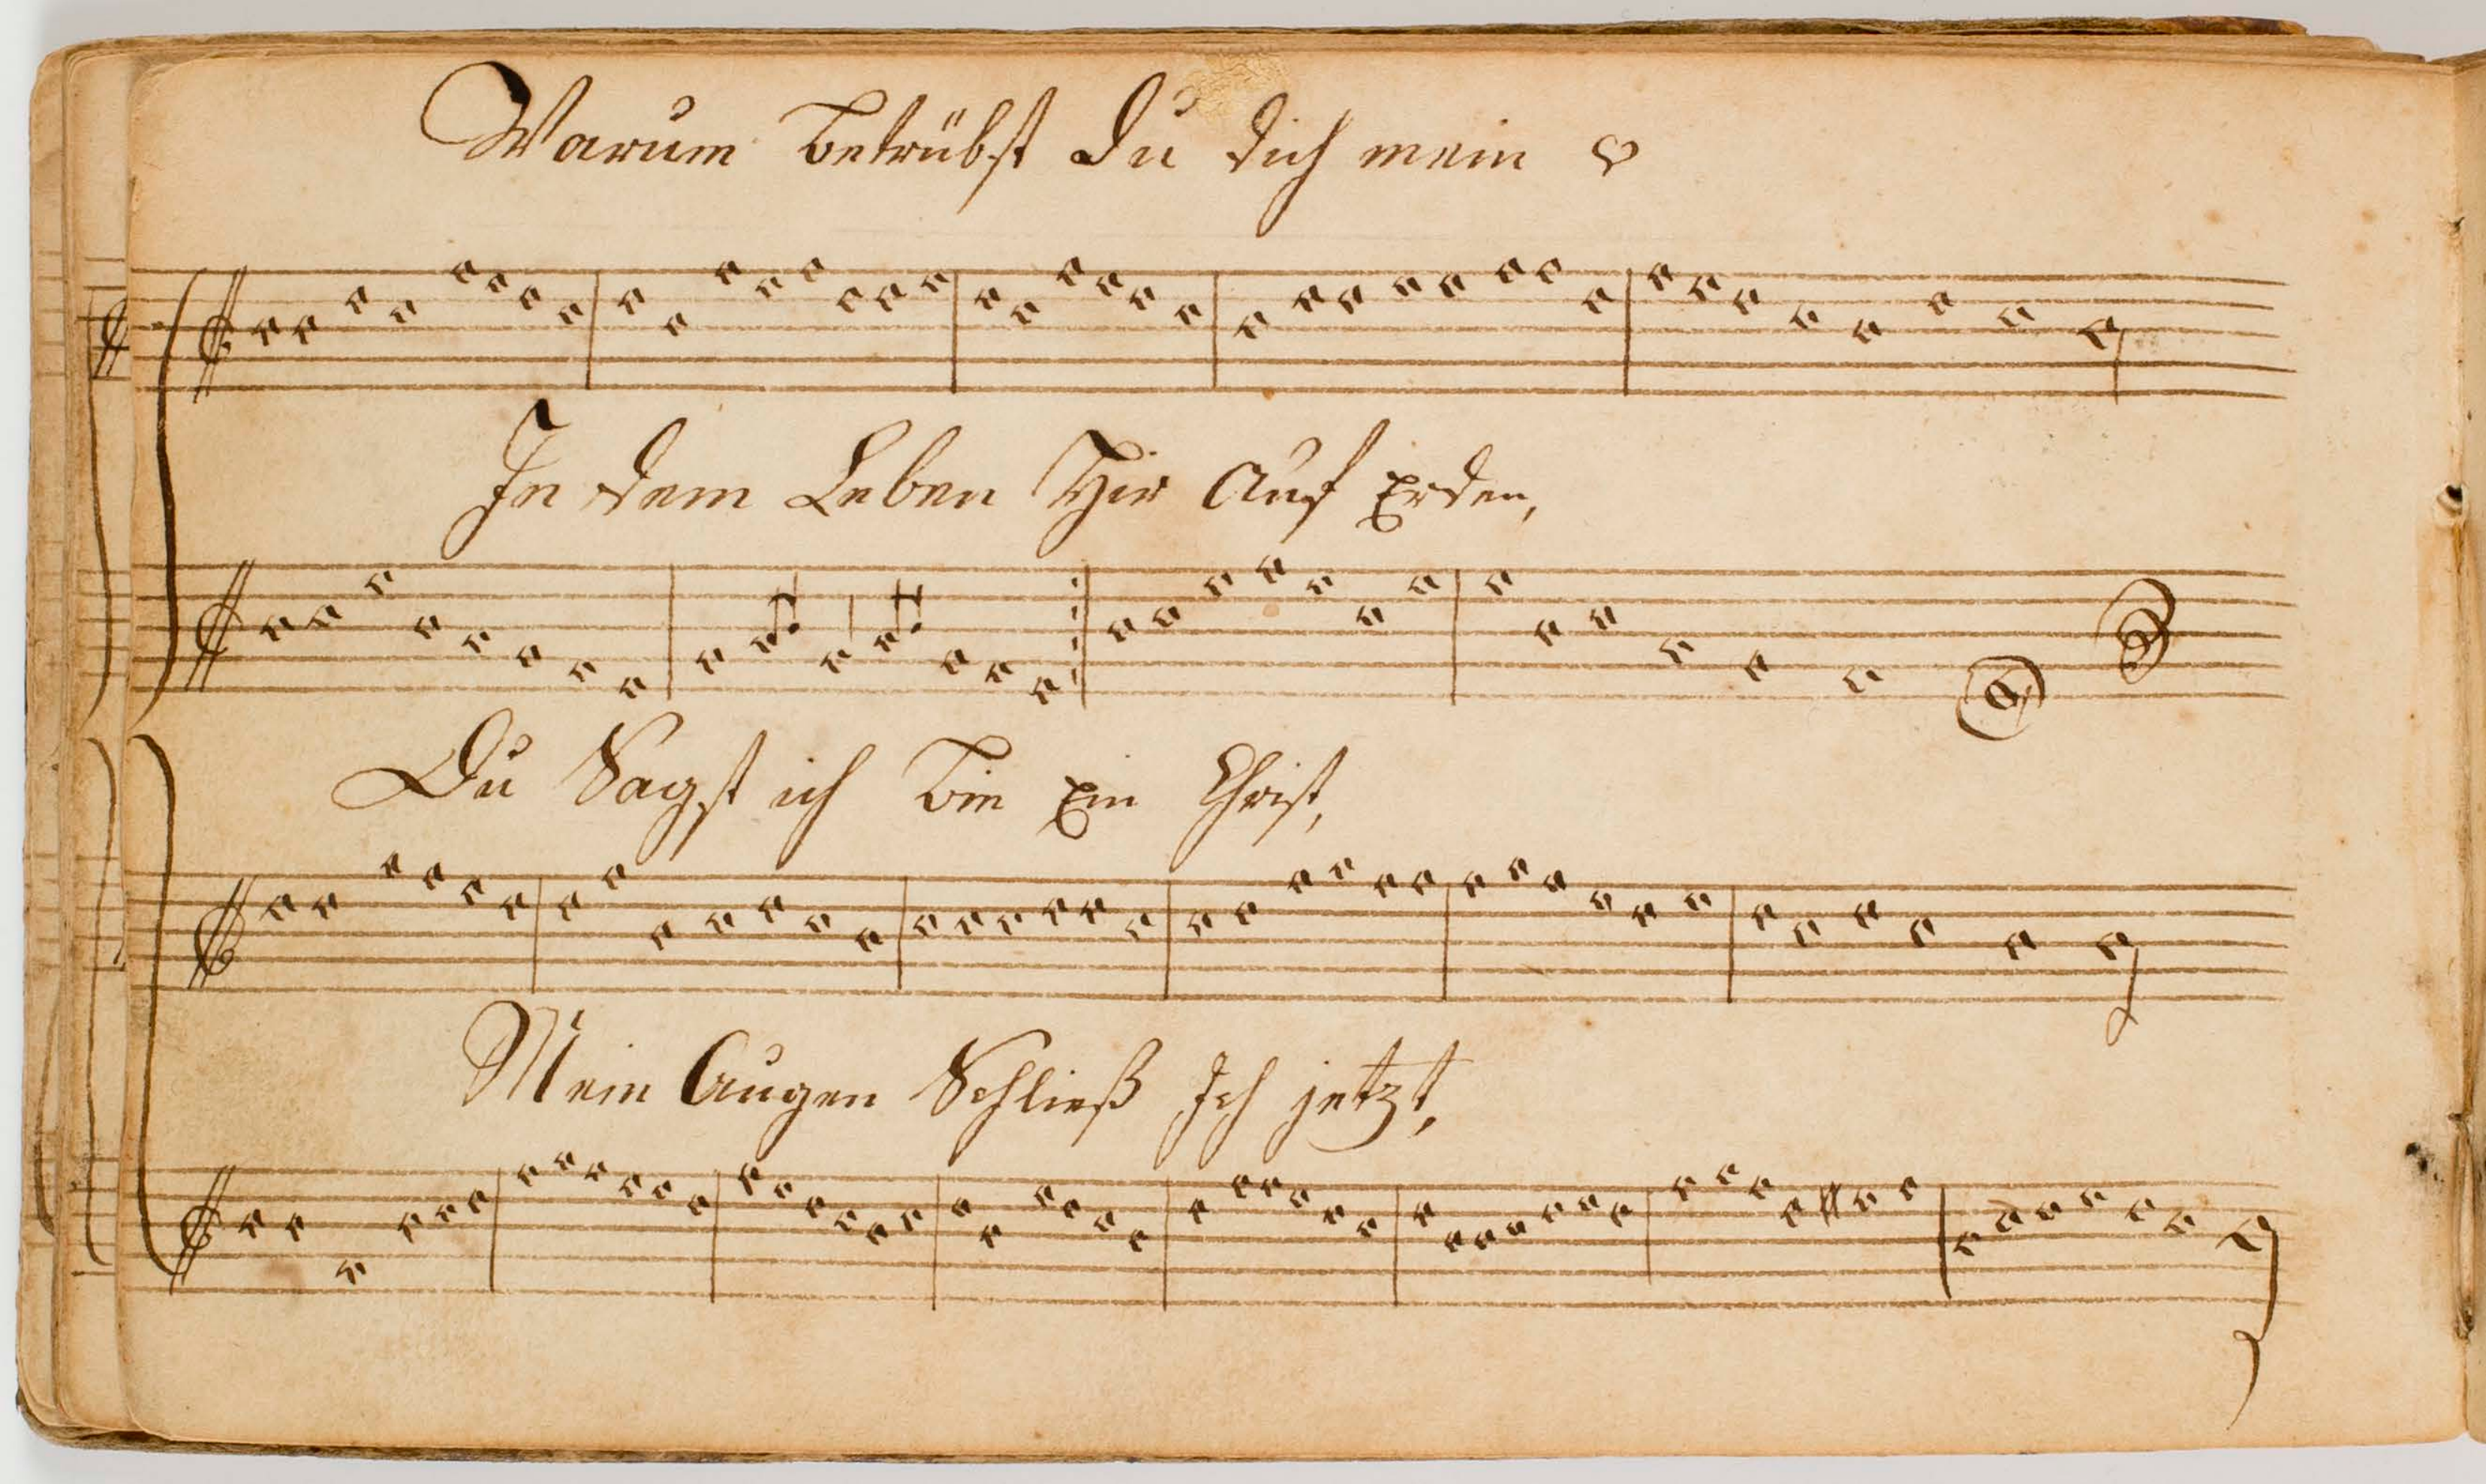 Warum betrübst du dich mein ♡
In dem Leben Hir auf Erden,
Du Sagst ich bin Ein Christ,
Mein Augen Schließ Ich jetzt,